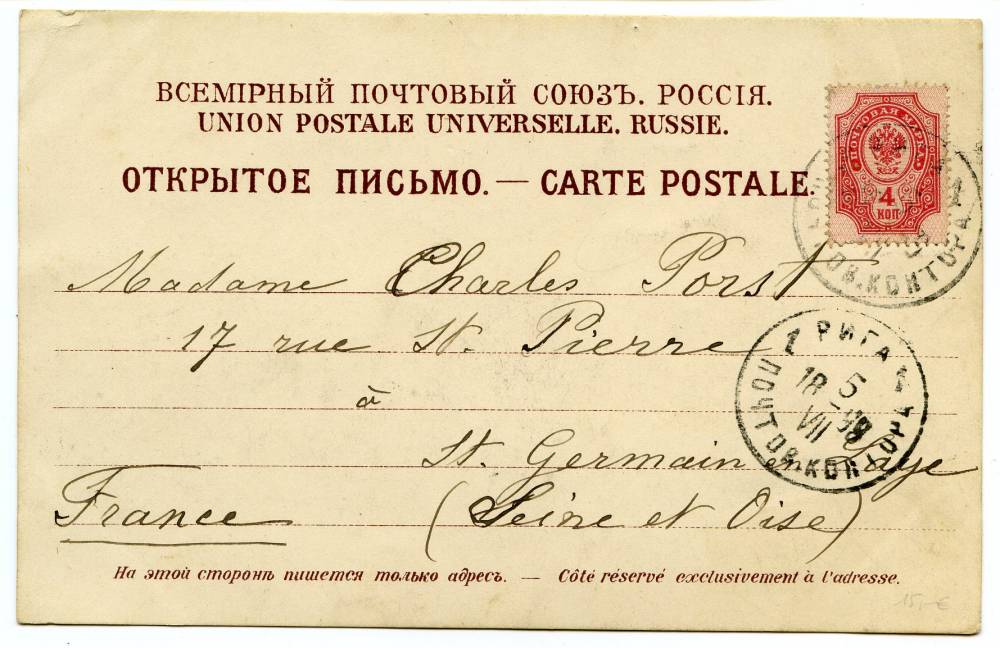 ВСЕМІРНЫЙ ПОЧТОВЫЙ СОЮЗЪ. РОССІЯ.
UNION POSTALE UNIVERSELLE. RUSSIE.
ОТКРЫТОЕ ПИСЬМО. — CARTE POSTALE.
ПОЧТОВАЯ МАРКА
4
КОП
Madame Charles Porst
17 rue St. Pierre
à
St. Germain en Laye
France (Seine et Oise)
1 РИГА 1
5
18 98
VII
ПОЧТОВ. КОНТОРА
ОВ. КОНТОРА 1
На этой сторонѣ пишется только адресъ. — Côté réservé exclusivement à l'adresse.
15,-€